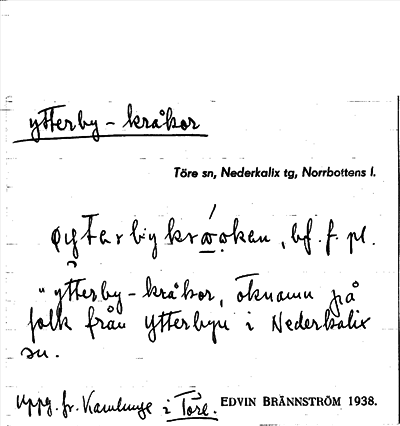 ytterby-kråkor
Töre sn, Nederkalix tg, Norrbottens l.
bf. f. pl.
"ytterby-kråkor, öknamn på
folk från Ytterbyn i Nederkalix
sn.
Uppg. fr. Kamlunge i Töre. EDVIN BRÄNNSTRÖM 1938.